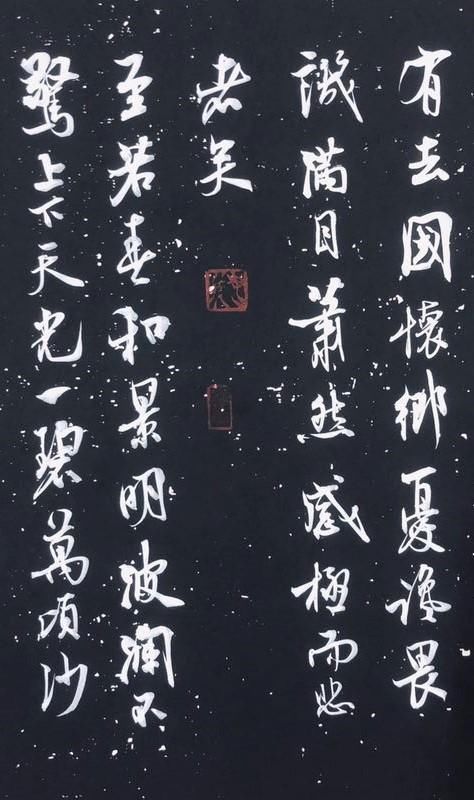 有去國懷鄉憂讒畏
譏滿目蕭然感極而悲
者矣
至若春和景明波瀾不
驚上下天光一碧萬頃沙